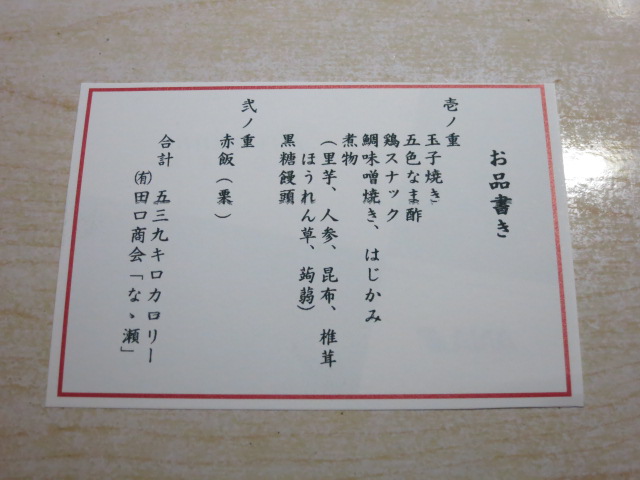 お品書き
壱ノ重
玉子焼き
五色なま酢
鶏スナック
鯛味噌焼き、はじかみ
煮物
（里芋、人参、昆布、椎茸
ほうれん草、蒟蒻）
黒糖饅頭
弐ノ重
赤飯（栗）
合計　五三九キロカロリー
㈲田口商会「なゝ瀬」